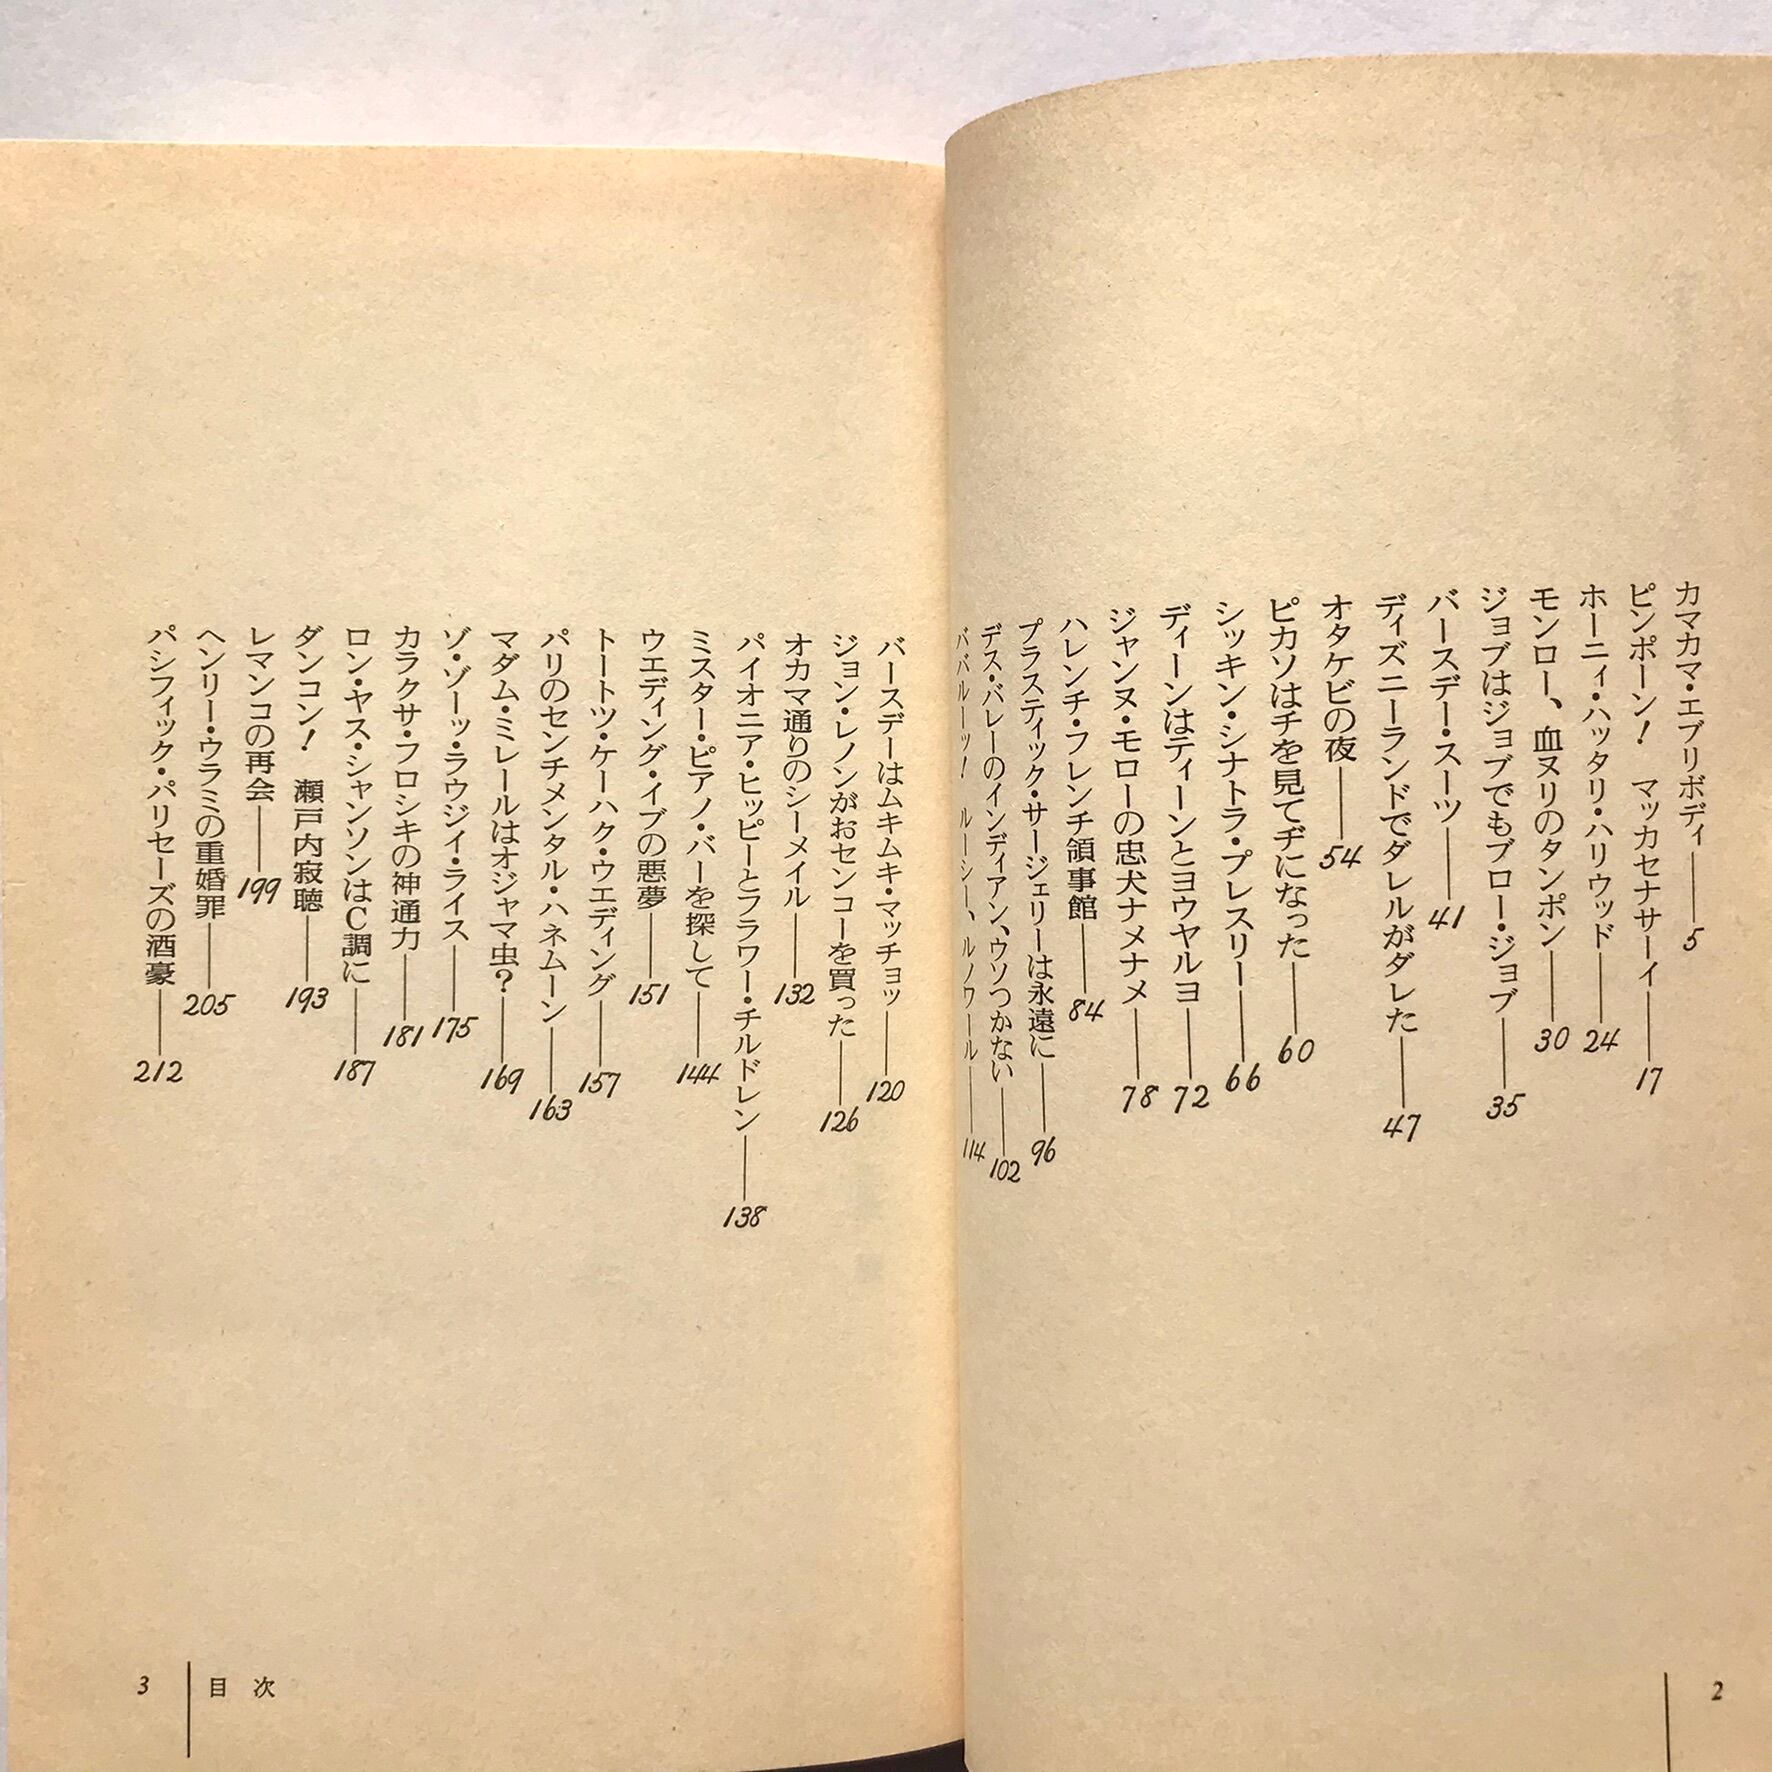 カマカマ・エブリボディ——5
ピンポーン！　マッカセナサーイ——17
ホーニィ・ハッタリ・ハリウッド——24
モンロー、血ヌリのタンポン——30
ジョブはジョブでもブロー・ジョブ——35
バースデー・スーツ——41
ディズニーランドでダレルがダレた——47
オタケビの夜——54
ピカソはチを見てヂになった——60
シッキン・シナトラ・プレスリー——66
ディーンはティーンとヨウヤルヨ——72
ジャンヌ・モローの忠犬ナメナメ——78
ハレンチ・フレンチ領事館——84
プラスティック・サージェリーは永遠に——96
デス・バレーのインディアン、ウソつかない——102
ババルーッ！　ルーシー、ルノワール——114
2
バースデーはムキムキ・マッチョッ——120
ジョン・レノンがおセンコーを買った——126
オカマ通りのシーメイル——132
パイオニア・ヒッピーとフラワー・チルドレン——138
ミスター・ピアノ・バーを探して——144
ウエディング・イブの悪夢——151
トートツ・ケーハク・ウエディング——157
パリのセンチメンタル・ハネムーン——163
マダム・ミレールはオジャマ虫？——169
ゾ・ゾーッ・ラウジイ・ライス——175
カラクサ・フロシキの神通力——181
ロン・ヤス・シャンソンはC調に——187
ダンコン！　瀬戸内寂聴——193
レマンコの再会——199
ヘンリー・ウラミの重婚罪——205
パシフィック・パリセーズの酒豪——212
3 目次